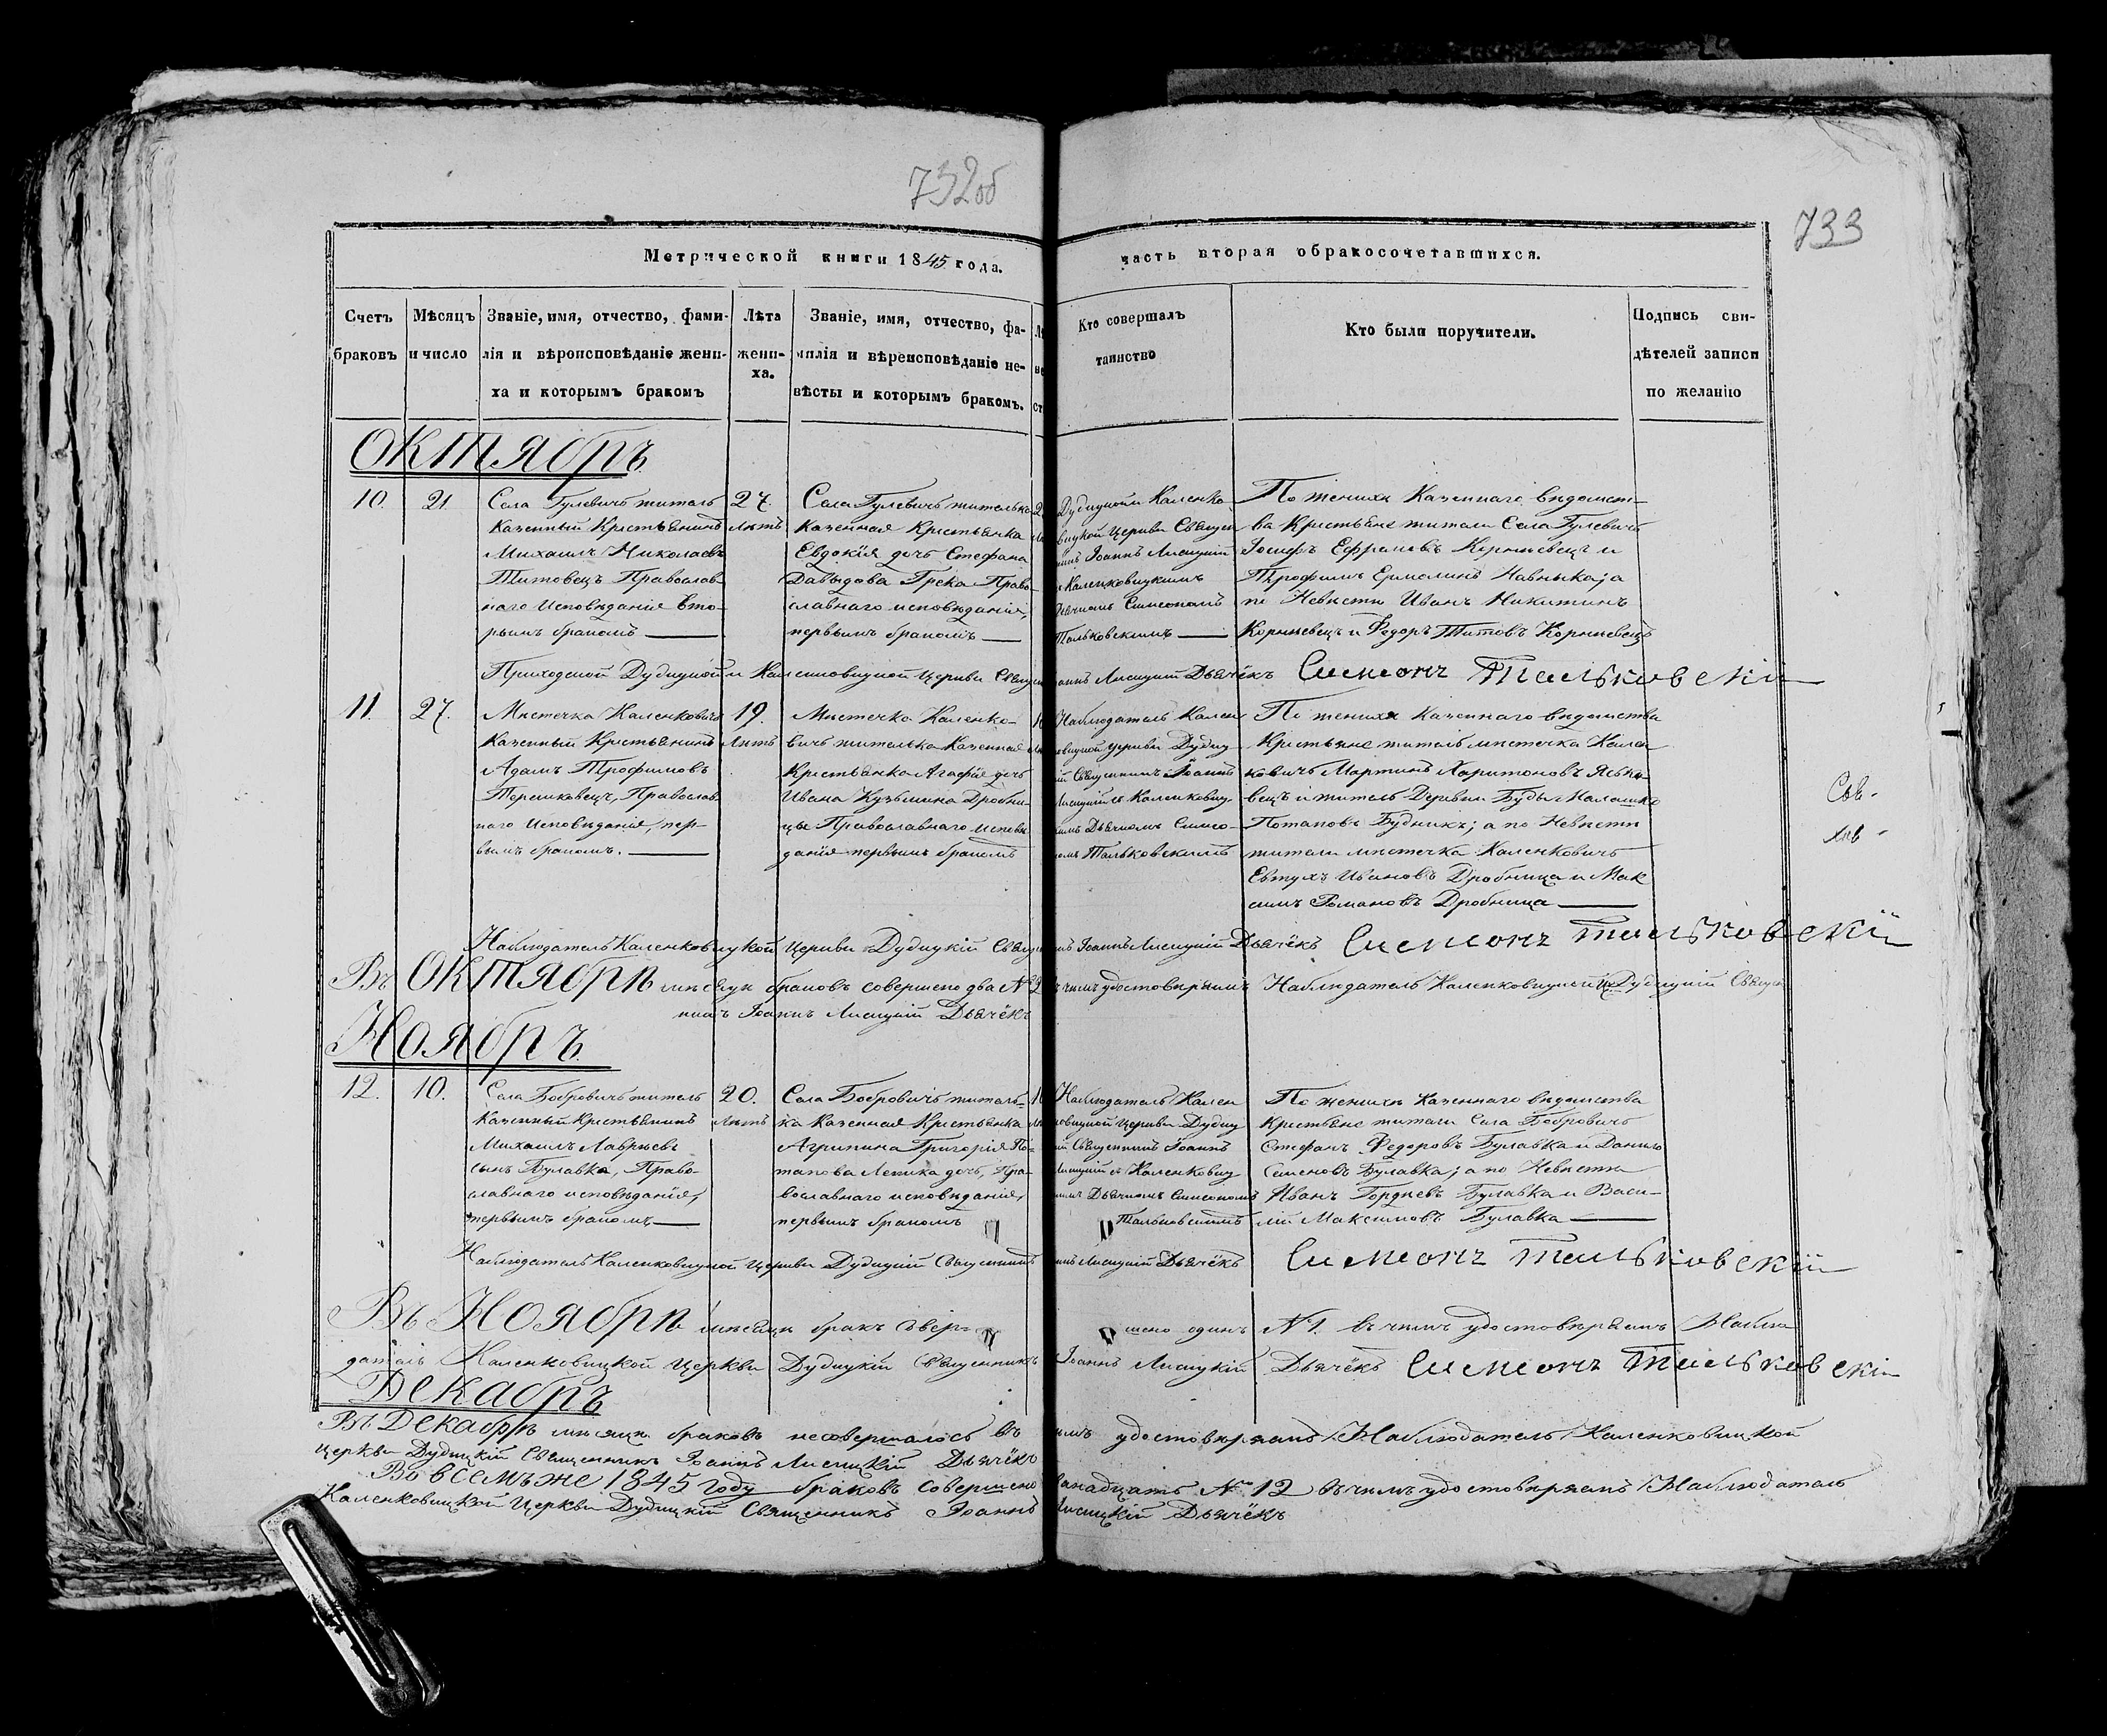 732об
733
Метрической книги 1845 года.
часть вторая обракосочетавшихся.
Счетъ браковъ
Мѣсяцъ и число
Званіе, имя, отчество, фами-
лія и вѣроисповѣданіе жени-
ха и которымъ бракомъ
Лѣта
жени-
ха.
Званіе, имя, отчество, фа-
милія и вѣроисповѣданіе не-
вѣсты и которымъ бракомъ.
Кто совершалъ
таинство
Кто были поручители.
Подпись сви-
дѣтелей записи
по желанію
Октябрь
10.
21
Села Гулевичъ житель
Казенный Крестьянинъ
Михаилъ Николаевъ
Титовецъ Православ-
наго Исповѣданія вто-
рымъ бракомъ
27.
лѣтъ
Села Гулевичъ жителька
Казенная Крестьянка
Евдокія дочь Стефана
Давыдова Грека Право-
славнаго исповѣданія,
первымъ бракомъ
Дудицкой и Каленко-
вицкой Церкви Священ
Іоаннъ Лисицкій
Каленковицкимъ
Дьячкомъ Симеономъ
Тальковскимъ
По женихѣ Казеннаго вѣдомст-
ва Крестьяне жители Села Гулевичъ
Іосифъ Ефрановъ Корнѣевецъ и
Трофимъ Ермолинъ Навныка; а
по Невѣсти Иванъ Никитинъ
Корнѣевецъ и Федоръ Титовъ Корнѣевецъ
Приходской Дудицкой и Каленковицкой Церкви Свящ
Лисицкій Дьячёкъ Симеонъ Тальковскій
11.
27.
Мѣстечка Каленковичъ
Казенный Крестьянинъ
Адамъ Трофимовъ
Терешковецъ, Православ-
наго Исповѣданія, пер-
вымъ бракомъ.
19.
лѣтъ
Мѣстечка Каленко-
вичъ жителька Казенная
Крестьянка Агафія дочь
Ивана Кузьмина Дробни-
цы Православнаго исповѣ-
данія первымъ бракомъ
Наблюдатель Кален
овицкой церкви Дудиц
Священникъ Іоаннъ
Лисицкій съ Каленковиц-
Дьячкомъ Симео-
Тальковскимъ
По женихѣ Казеннаго вѣдомства
Крестьяне житель мѣстечка Кален
ковичъ Мартинъ Харитоновъ Яськ-
вецъ и житель Деревни Буды Малашка
Потаповъ Будникъ; а по Невѣсти
жители мѣстечка Каленковичъ
Евтухъ Ивановъ Дробница и Мак
симъ Романовъ Дробница
Наблюдатель Каленковицкой Церкви Дудицкій Свящ
Іоаннъ Лисицкій Дьячёкъ Симеонъ Тальковскій
Въ Октябрѣ мѣсяцѣ браковъ совершено два №2
чемъ удостовѣряемъ Наблюдатель Каленковицкой Ц. Дудицкій Священ
никъ Іоаннъ Лисицкій Дьячёкъ
Ноябрь
12.
10.
Села Бобровичъ житель
Казенный Крестьянинъ
Михаилъ Лаврѣевъ
сынъ Булавка, Право-
славнаго исповѣданія,
первымъ бракомъ
20.
лѣтъ
Села Бобровичъ житель-
ка Казенная Крестьянка
Агрипина Григорія По-
тапова Лепика дочь, Пра-
вославнаго исповѣданія,
первымъ бракомъ
Наблюдатель Кален
овицкой Церкви Дудиц
Священникъ Іоаннъ
Лисицкій съ Каленковиц
Дьячкомъ Симеономъ
Тальковскимъ
По женихѣ Казеннаго вѣдомства
Крестьяне жители Села Бобровичъ
Стефанъ Федоровъ Булавка и Данило
Семеновъ Булавка; а по Невѣсти
Иванъ Гордѣевъ Булавка и Васи-
лій Максимовъ Булавка
Наблюдатель Каленковицкой Церкви Дудицкій Священникъ
Лисицкій Дьячёкъ Симеонъ Тальковскій
Въ Ноябрѣ мѣсяцѣ бракъ совер-
шено одинъ №1. въ чемъ удостовѣряемъ Наблю
датель Каленковицкой Церкви Дудицкій Священникъ
Іоаннъ Лисицкій Дьячёкъ Симеонъ Тальковскій
Декабрь
Въ Декабрѣ мѣсяцѣ браковъ несовершалось въ
чемъ удостовѣряемъ Наблюдатель Каленковицкой
церкви Дудицкій Священникъ Іоаннъ Лисицкій Дьячёкъ
Во всемъ же 1845 году браковъ совершено
двѣнадцать № 12 въ чемъ удостовѣряемъ Наблюдатель
Каленковицкой Церкви Дудицкій Священникъ Іоаннъ
Лисицкій Дьячёкъ